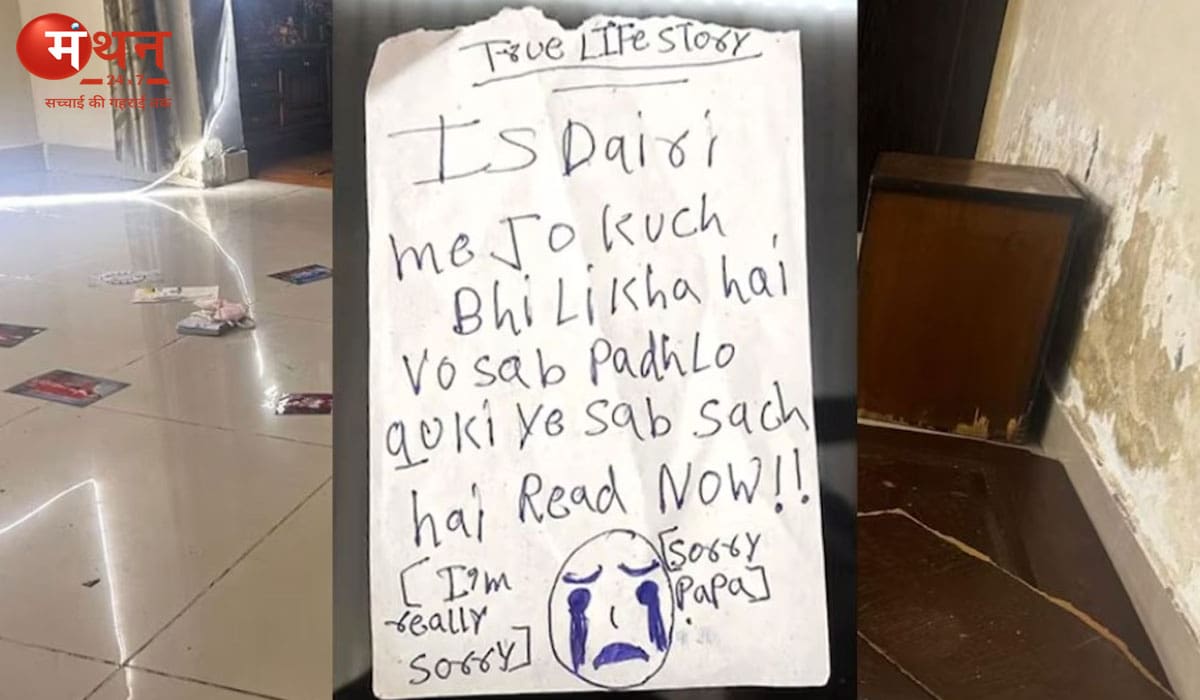 मंथन
24x7
सच्चाई की गहराई तक
True LIFe STory
IS Dairi
me Jo kuch
Bhi Likha hai
Vo sab Padh Lo
quki ye sab sach
hai Read NOW!!
[I'm
really
sorry]
[sorry
Papa]